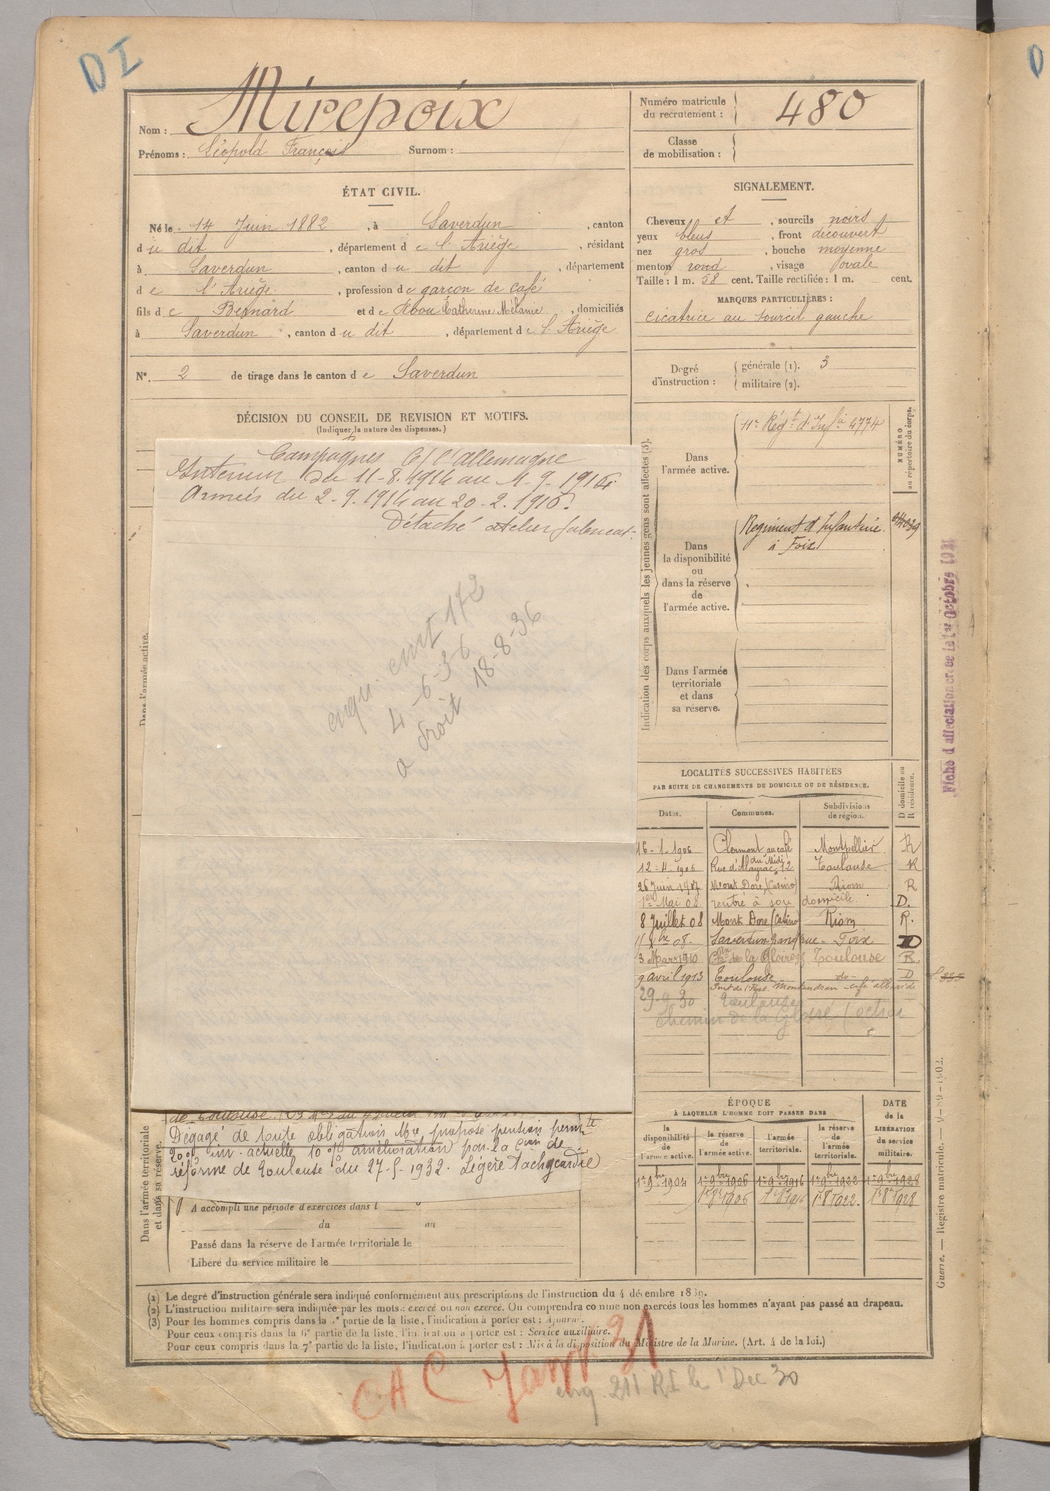 DI
Nom : Mirepoix
Prénoms : Léopold François Surnom :
Numéro matricule du recrutement : 480
Classe de mobilisation :
ÉTAT CIVIL.
Né le 14 Juin 1882, à Saverdun, canton
du dit, département de l'Ariège, résidant
à Saverdun, canton du dit, département
de l'Ariège, profession de garçon de café
fils de Bernard et de Catherine Mélanie, domiciliés
à Saverdun, canton du dit, département de l'Ariège
N° 2 de tirage dans le canton de Saverdun
SIGNALEMENT.
Cheveux et, sourcils noirs
yeux bleus, front découvert
nez gros, bouche moyenne
menton rond, visage ovale
Taille : 1 m. 58 cent. Taille rectifiée : 1 m. cent.
MARQUES PARTICULIÈRES :
cicatrice au sourcil gauche
Degré d'instruction : générale (1). 3
militaire (2).
DÉCISION DU CONSEIL DE REVISION ET MOTIFS.
(Indiquer la nature des dispenses.)
Campagnes C/ l'Allemagne
Intérieur du 11-8-1914 au 1-9-1914
Armées du 2-9-1914 au 20-2-1916
Détaché atelier
enqu. 172
4-6-36
a droit 18-8-36
Dans l'armée active.
Indication des corps auxquels les jeunes gens sont affectés (3).
NUMÉRO
au répertoire du corps.
Dans l'armée active.
11e Régt d'Infie 4774
Dans la disponibilité ou dans la réserve de l'armée active.
Régiment d'Infanterie
à Foix
Dans l'armée territoriale et dans sa réserve.
Fiche d'affectation créée le 1er Octobre 1921
LOCALITÉS SUCCESSIVES HABITÉES
PAR SUITE DE CHANGEMENTS DE DOMICILE OU DE RÉSIDENCE.
Dates. Communes. Subdivisions de région. D domicile ou R résidence.
16-1-1906 Clermont au café du Midi Montpellier R
12-4-1906 Rue d'Alayrac 12 Toulouse R
26 Juin 1907 Mont Dore (Casino) Riom R
1er Mai 08 rentré à son domicile D.
8 Juillet 08 Mont Dore (Casino) Riom R.
Saverdun Foix D
3 Mars 1910 de la Gloire Toulouse R.
9 avril 1913 Toulouse do D
29-9-30 Toulouse
Chemin de la Gloire
de Toulouse
Dégagé de toute obligation Mre propose pension permte
20% inv. actuelle 10% amélioration par la Con de
réforme de Toulouse du 27-5-1932. Légère tachycardie
Dans l'armée territoriale et dans sa réserve.
A accompli une période d'exercices dans l
du au
Passé dans la réserve de l'armée territoriale le
Libéré du service militaire le
ÉPOQUE
À LAQUELLE L'HOMME DOIT PASSER DANS
DATE de la LIBÉRATION du service militaire.
la disponibilité de l'armée active. la réserve de l'armée active. l'armée territoriale. la réserve de l'armée territoriale.
1er 9bre 1904 1er 9bre 1906 1er 9bre 1916 1er 9bre 1922 1er 9bre 1928
1r 8bre 1906 1r 8bre 1916 1r 8bre 1922. 1r 8bre 1928
Guerre. — Registre matricule.
(1) Le degré d'instruction générale sera indiqué conformément aux prescriptions de l'instruction du 4 décembre 1889.
(2) L'instruction militaire sera indiquée par les mots : exercé ou non exercé. On comprendra comme non exercés tous les hommes n'ayant pas passé au drapeau.
(3) Pour les hommes compris dans la partie de la liste, l'indication à porter est : Ajourné.
Pour ceux compris dans la 6e partie de la liste, l'indication à porter est : Service auxiliaire.
Pour ceux compris dans la 7e partie de la liste, l'indication à porter est : Mis à la disposition du Ministre de la Marine. (Art. 4 de la loi.)
CAC Janv 31
enq. 211 RI le 1 Dec 30